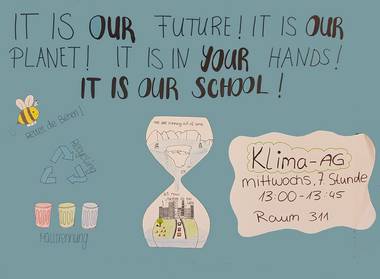 IT IS OUR FUTURE! IT IS OUR
PLANET! IT IS IN YOUR HANDS!
IT IS OUR SCHOOL!
Rettet die Bienen!
Recycling
Mülltrennung
we are running out of time
Klima-AG
Mittwochs, 7. Stunde
13:00-13:45
Raum 311